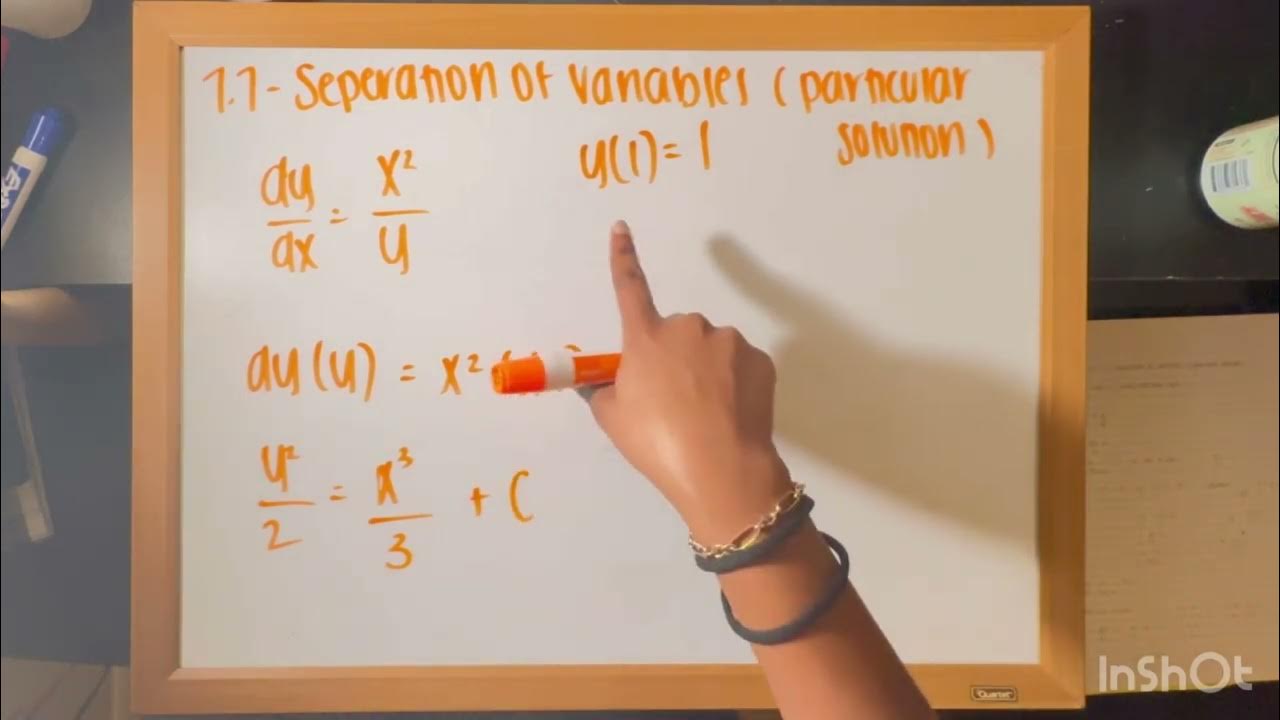 7.7 - Seperation of variables (particular
solution)
y(1) = 1
dy/dx = x²/y
dy(y) = x²
y²/2 = x³/3 + C
Quartet
InShOt